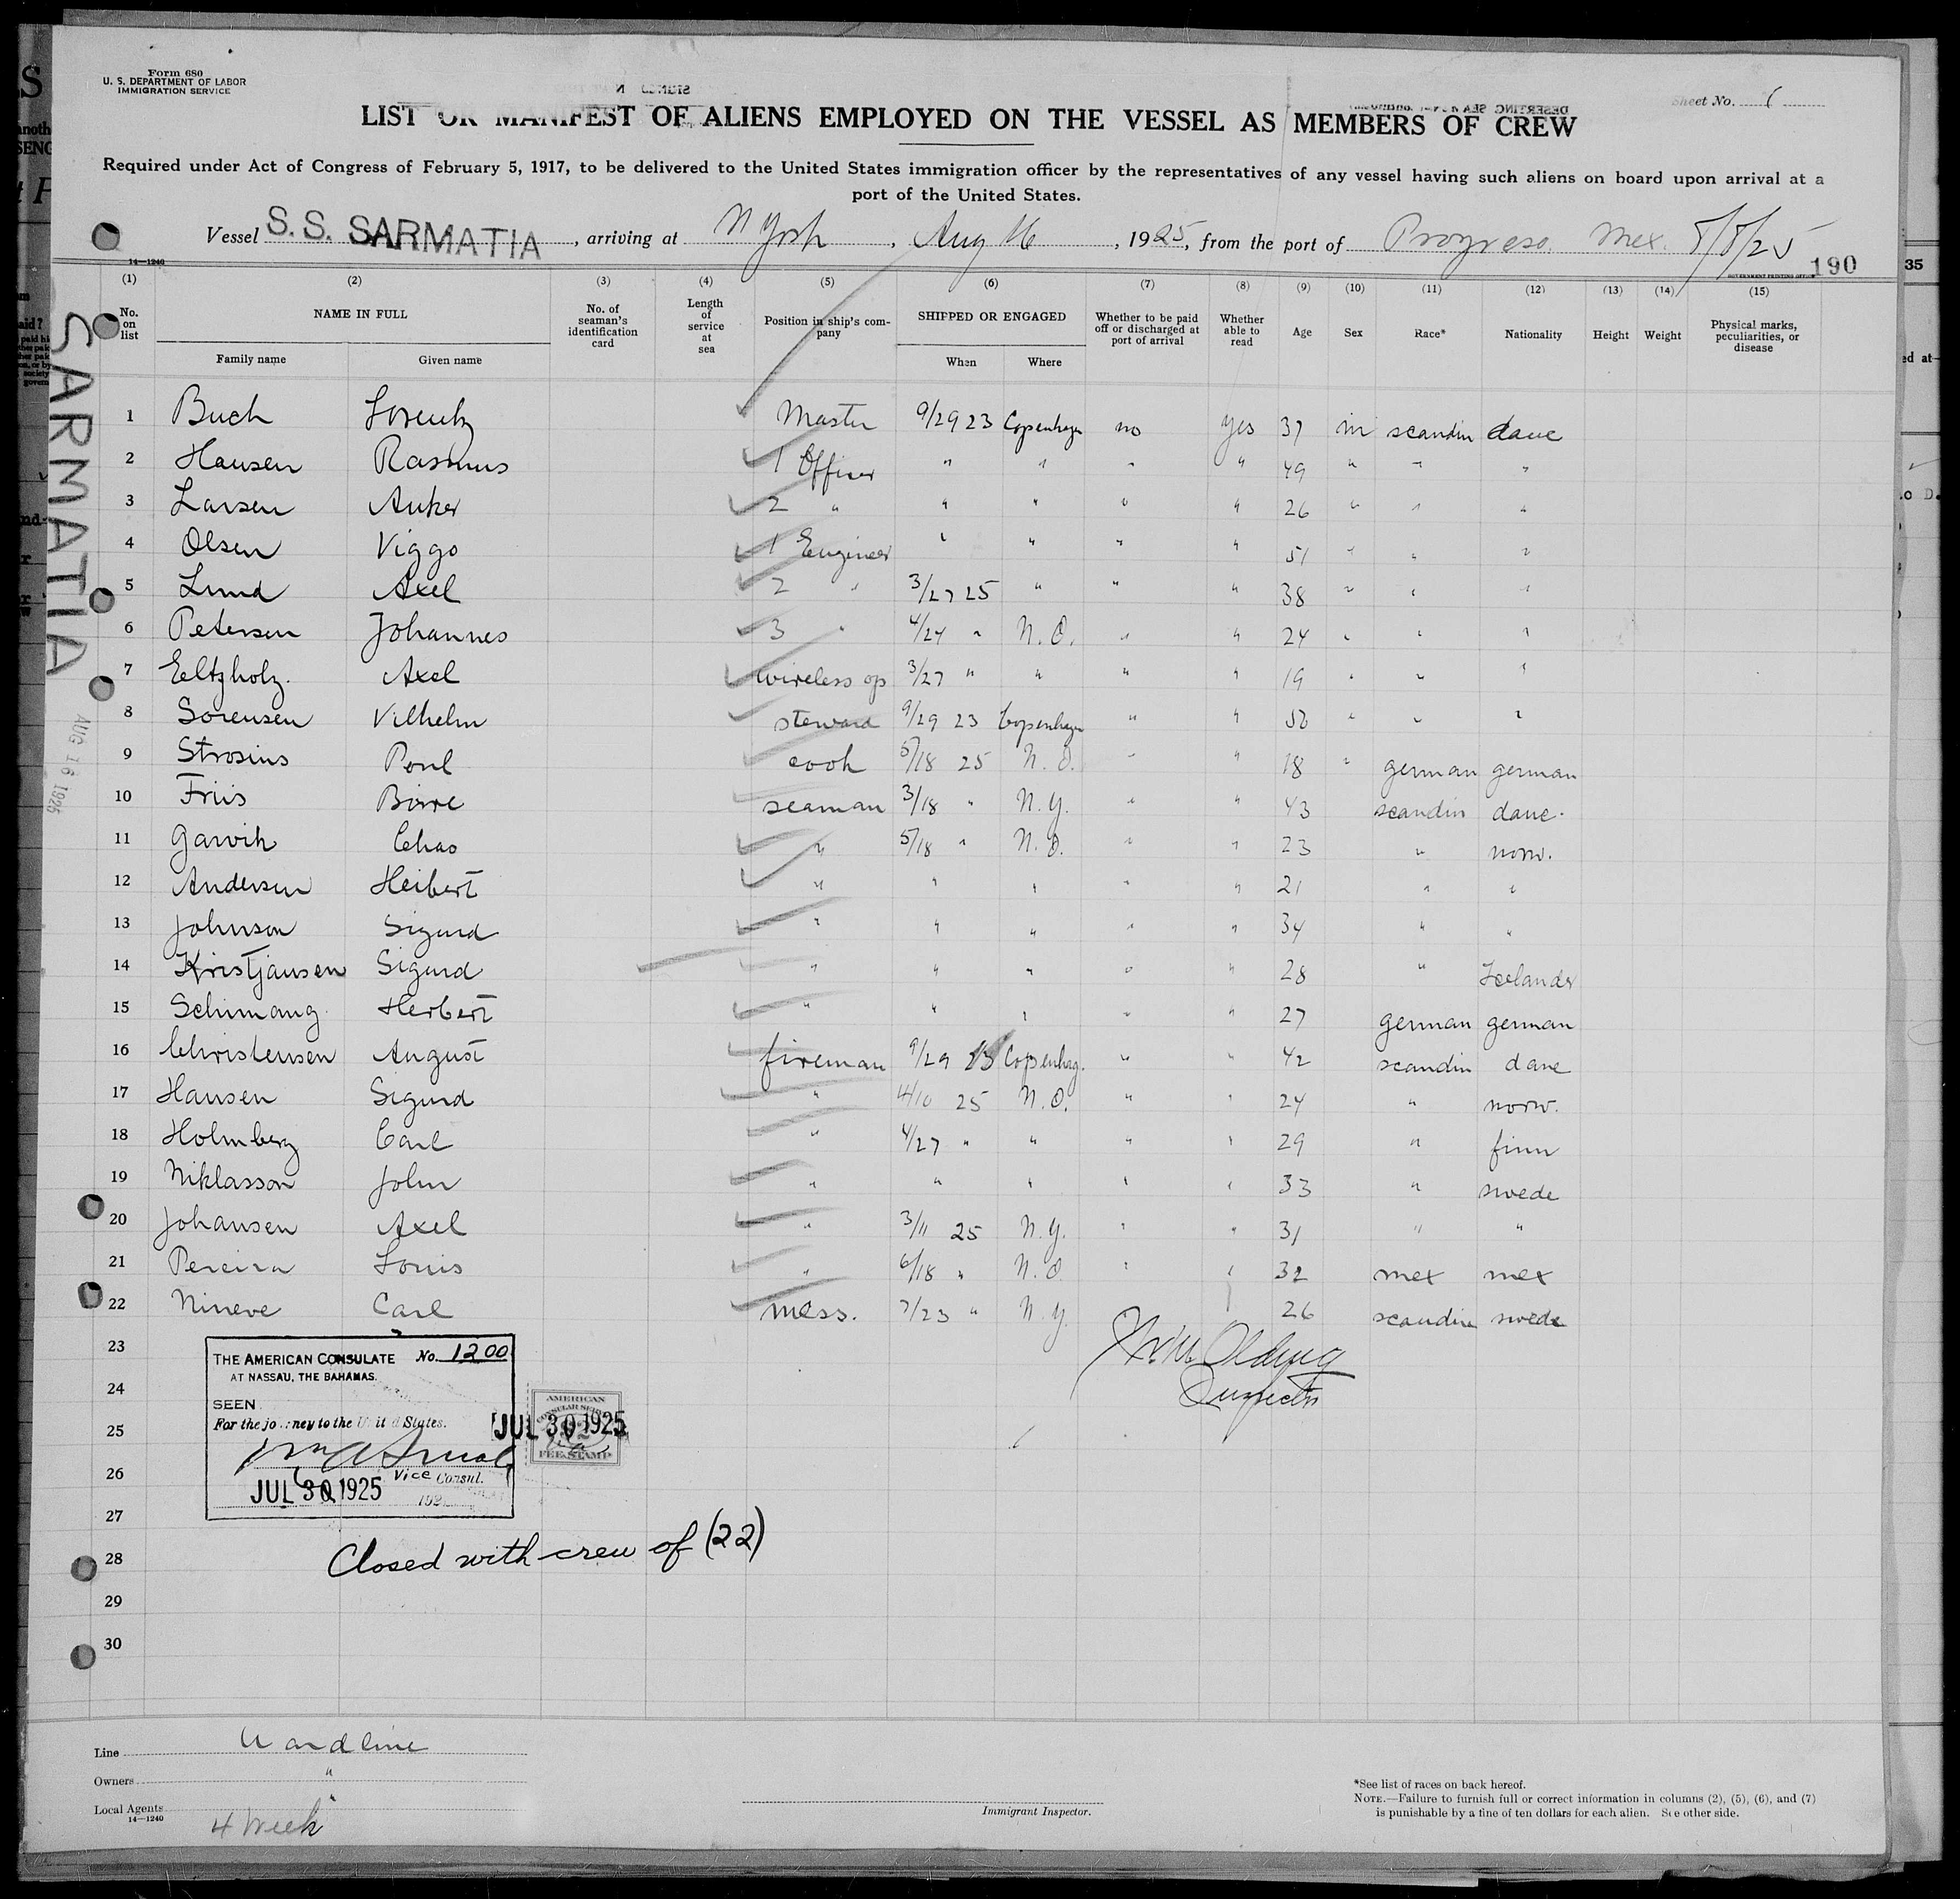 Form 680
U. S. DEPARTMENT OF LABOR
IMMIGRATION SERVICE
Sheet No. 1
LIST OR MANIFEST OF ALIENS EMPLOYED ON THE VESSEL AS MEMBERS OF CREW
Required under Act of Congress of February 5, 1917, to be delivered to the United States immigration officer by the representatives of any vessel having such aliens on board upon arrival at a
port of the United States.
Vessel S. S. SARMATIA, arriving at N York, Aug 16, 1925, from the port of Progreso Mex. 8/8/25
14—1240 GOVERNMENT PRINTING OFFICE 190
(1) (2) (3) (4) (5) (6) (7) (8) (9) (10) (11) (12) (13) (14) (15)
No. on list NAME IN FULL Family name Given name No. of seaman's identification card Length of service at sea Position in ship's company SHIPPED OR ENGAGED When Where Whether to be paid off or discharged at port of arrival Whether able to read Age Sex Race* Nationality Height Weight Physical marks, peculiarities, or disease
1 Buch Lorentz Master 9/29 23 Copenhagen no yes 37 m scandin dane
2 Hansen Rasmus 1 Officer " " " " 49 " " "
3 Larsen Anker 2 " " " " " 26 " " "
4 Olsen Viggo 1 Engineer " " " " 51 " " "
5 Lund Axel 2 " 3/27 25 " " " 38 " " "
6 Petersen Johannes 3 " 4/24 " N. O. " " 24 " " "
7 Eeltzholz. Axel wireless op 3/27 " " " " 19 " " "
8 Sorensen Vilhelm steward 9/29 23 Copenhagen " " " " "
9 Strosius Poul cook 5/18 25 N. O. " " 18 " german german
10 Friis Börre seaman 3/18 " N. Y. " " 43 scandin dane.
11 Garvik Chas " 5/18 " N. O. " " 23 " norw.
12 Andersen Heibert " " " " " 21 " "
13 Johnson Sigurd " " " " " 34 " "
14 Kristjansen Sigurd " " " " " 28 " Icelander
15 Schimang Herbert " " " " " 27 german german
16 Christensen August fireman 9/29 23 Copenhag. " " 42 scandin dane
17 Hansen Sigurd " 4/10 25 N. O. " " 24 " norw.
18 Holmberg Carl " 4/27 " " " " 29 " finn
19 Niklasson John " " " " " 33 " swede
20 Johansen Axel " 3/11 25 N. Y. " " 31 " "
21 Pereira Louis " 6/18 " N. O " " 32 mex mex
22 Nineve Carl mess. 7/23 " N. Y. " 26 scandin swede
23
24
25
26
27
28
29
30
Inspector
THE AMERICAN CONSULATE No. 1200
AT NASSAU, THE BAHAMAS.
SEEN
For the journey to the United States.
Vice Consul.
JUL 30 1925
AMERICAN
CONSULAR SERVICE
JUL 30 1925
FEE STAMP
Closed with crew of (22)
SARMATIA
AUG 16 1925
Line Wardline
Owners "
Local Agents "
14—1240
4 Week
Immigrant Inspector.
*See list of races on back hereof.
NOTE.—Failure to furnish full or correct information in columns (2), (5), (6), and (7)
is punishable by a fine of ten dollars for each alien. See other side.